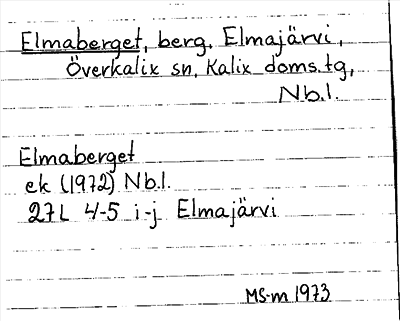 Elmaberget, berg, Elmajärvi,
Överkalix sn, Kalix doms.tg,
Nb.l.
Elmaberget
ek (1972) Nb.l.
27L 4-5 i-j Elmajärvi
MS-m 1973